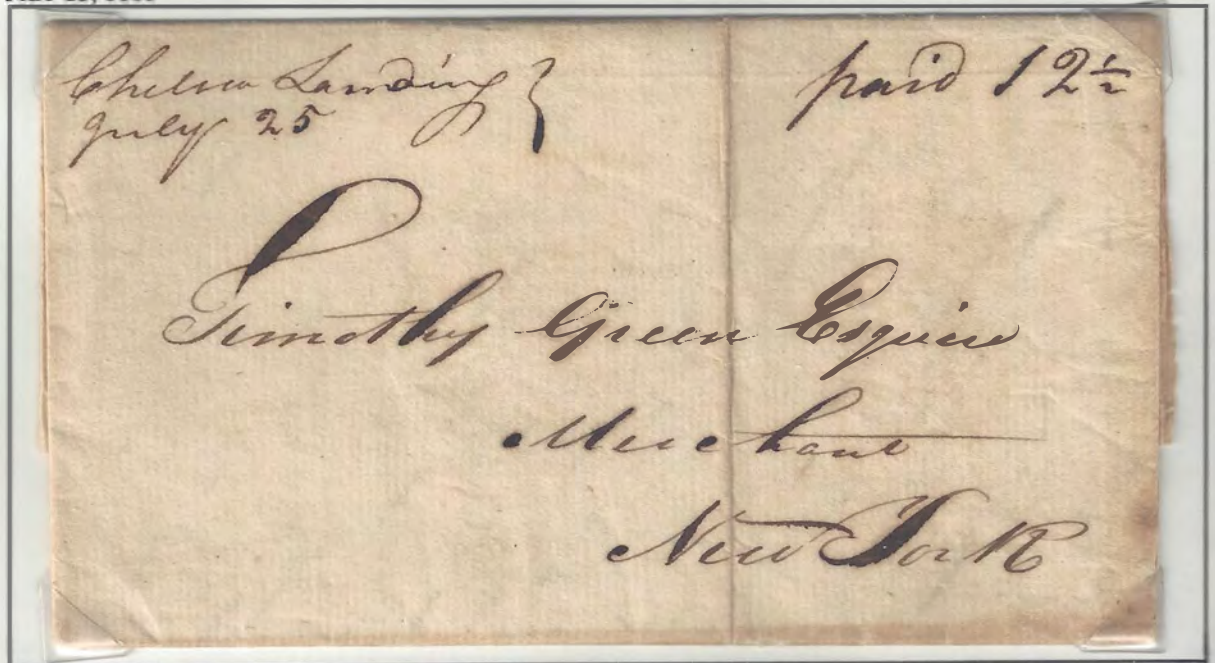 Chelsea Landing }
July 25
paid 12½
Timothy Green Esquire
Merchant
New York